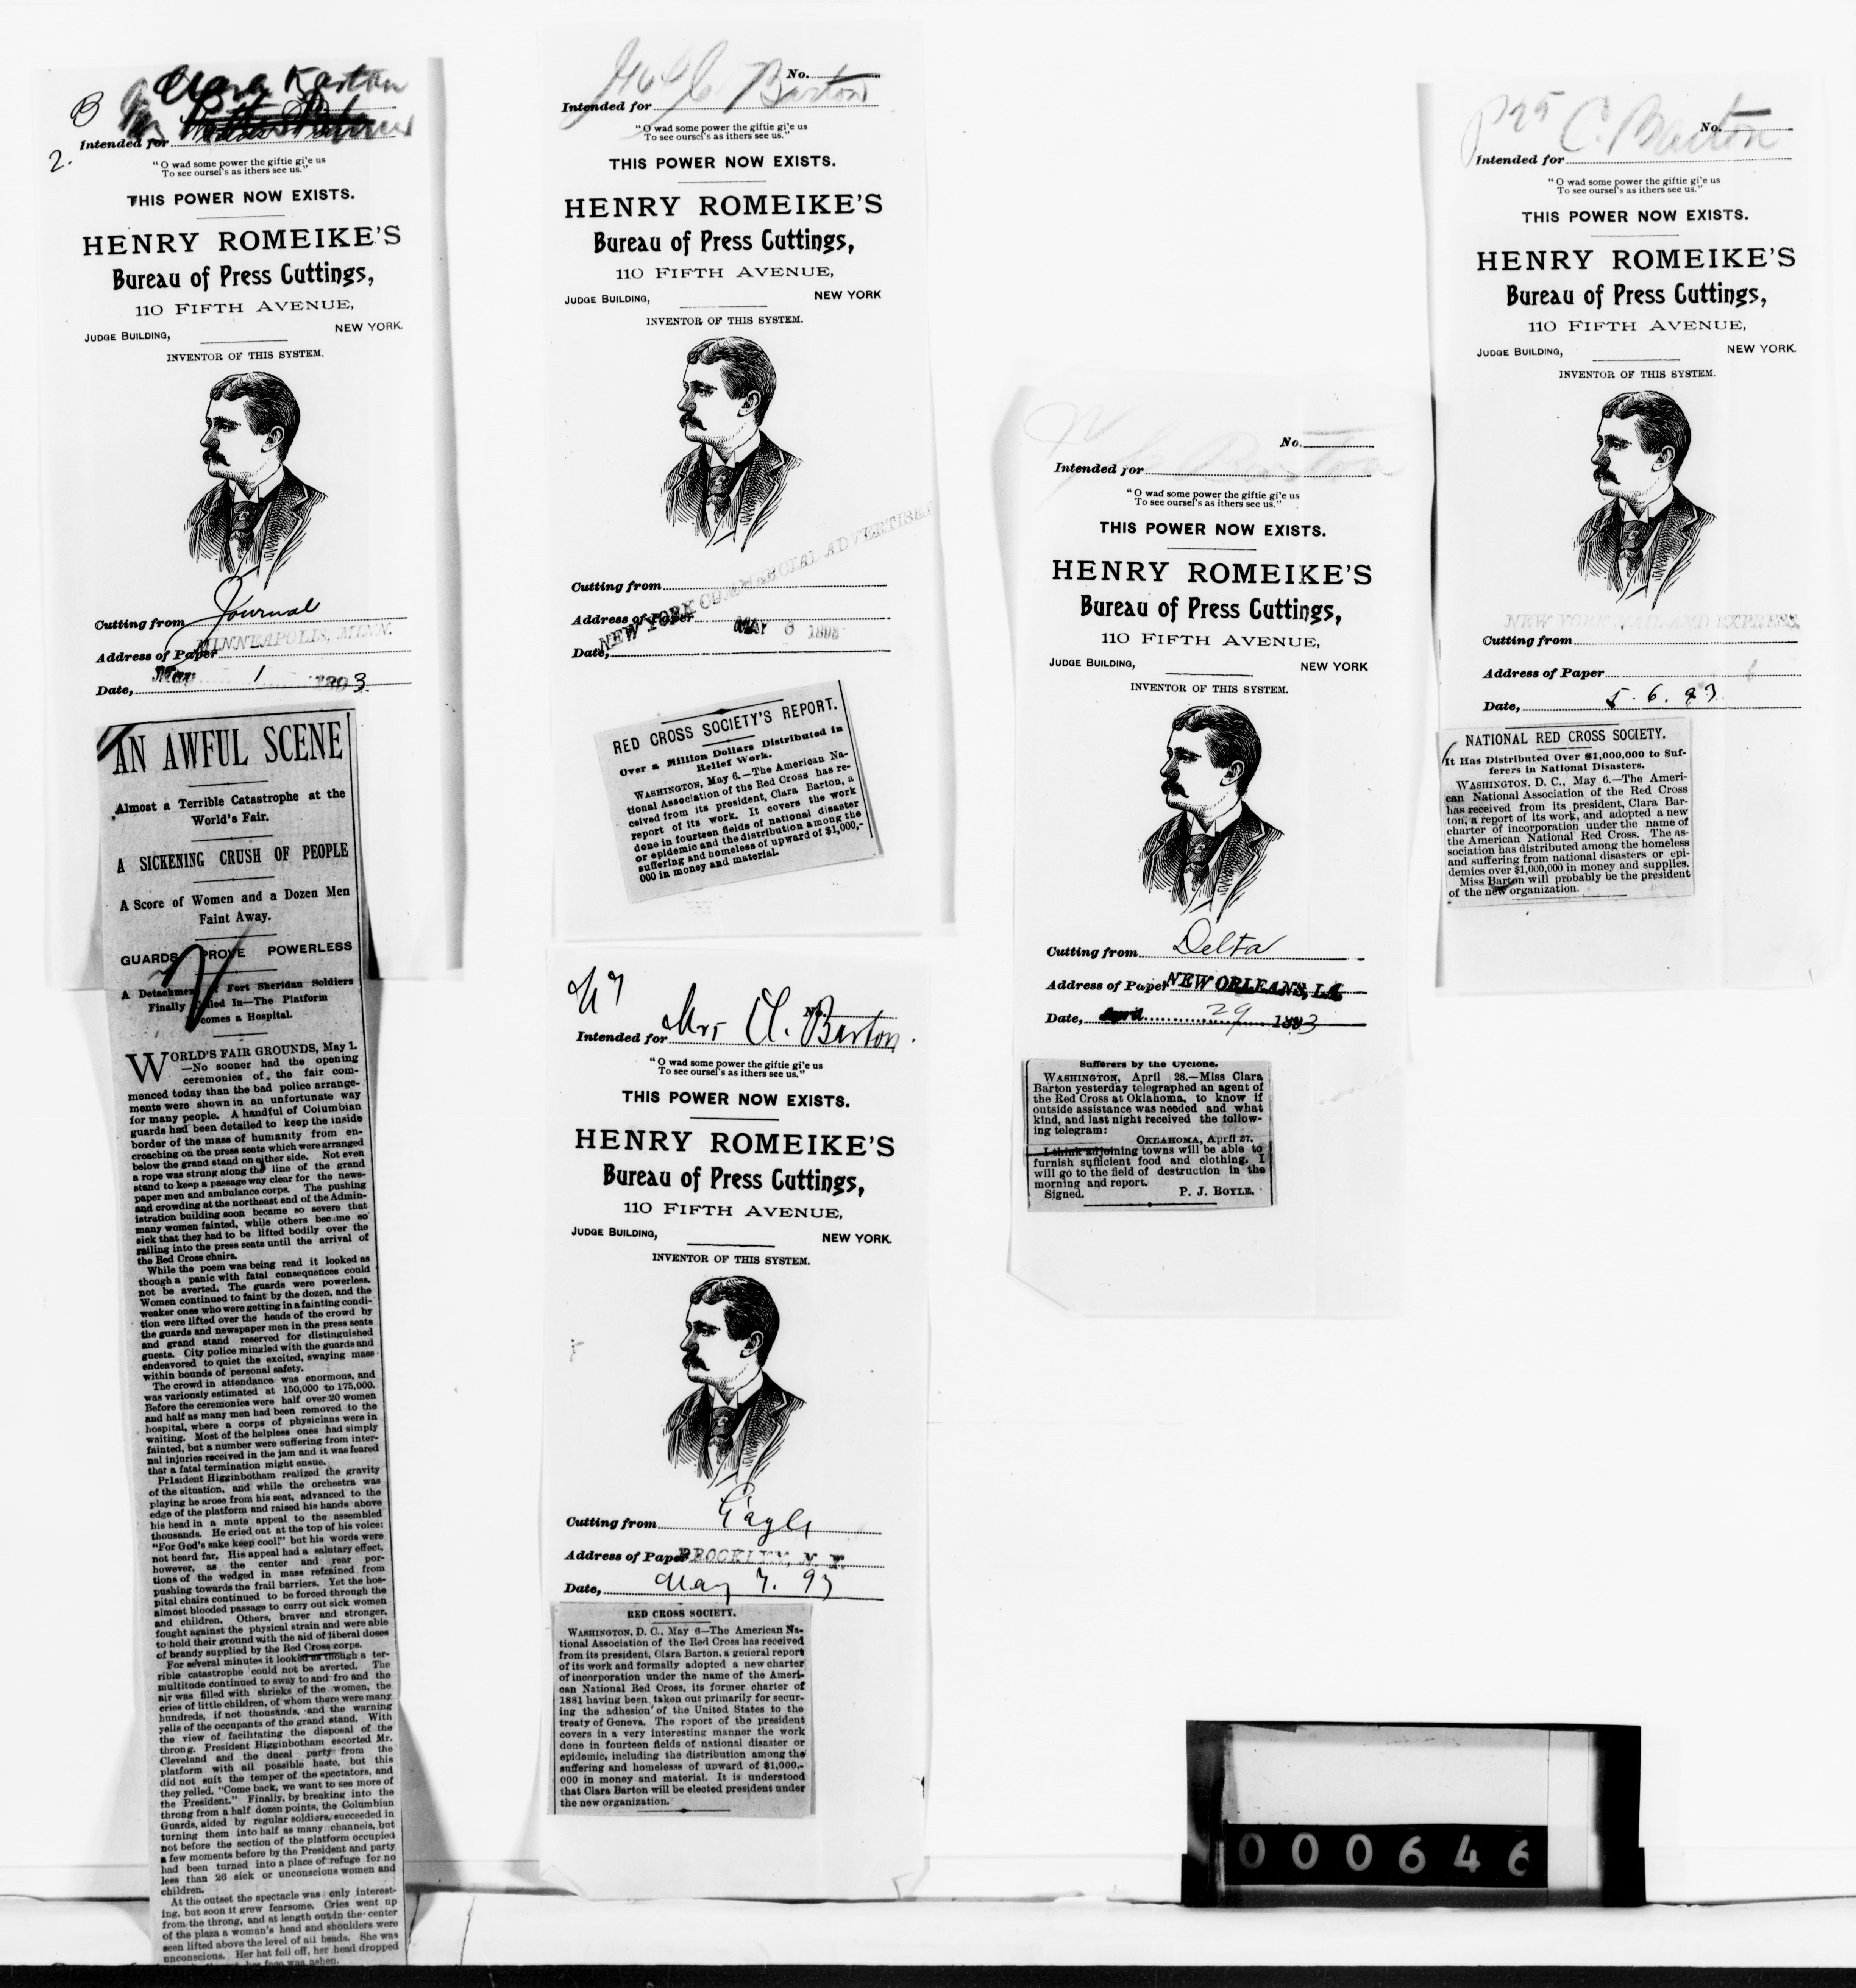 Clara Barton
B
Intended for
2.
"O wad some power the giftie gi'e us
To see oursel's as ithers see us."
THIS POWER NOW EXISTS.
HENRY ROMEIKE'S
Bureau of Press Cuttings,
110 FIFTH AVENUE,
JUDGE BUILDING, NEW YORK.
INVENTOR OF THIS SYSTEM.
Cutting from Journal
Address of Paper MINNEAPOLIS, MINN.
Date, May 1 1893.
AN AWFUL SCENE
Almost a Terrible Catastrophe at the
World's Fair.
A SICKENING CRUSH OF PEOPLE
A Score of Women and a Dozen Men
Faint Away.
GUARDS PROVE POWERLESS
A Detachmen Fort Sheridan Soldiers
Finally Called In—The Platform
comes a Hospital.
WORLD'S FAIR GROUNDS, May 1.
—No sooner had the opening
ceremonies of the fair com-
menced today than the bad police arrange-
ments were shown in an unfortunate way
for many people. A handful of Columbian
guards had been detailed to keep the inside
border of the mass of humanity from en-
croaching on the press seats which were arranged
below the grand stand on either side. Not even
a rope was strung along the line of the grand
stand to keep a passage way clear for the news-
paper men and ambulance corps. The pushing
and crowding at the northeast end of the Admin-
istration building soon became so severe that
many women fainted, while others became so
sick that they had to be lifted bodily over the
railing into the press seats until the arrival of
the Red Cross chairs.
While the poem was being read it looked as
though a panic with fatal consequences could
not be averted. The guards were powerless.
Women continued to faint by the dozen, and the
weaker ones who were getting in a fainting condi-
tion were lifted over the heads of the crowd by
the guards and newspaper men in the press seats
and grand stand reserved for distinguished
guests. City police mingled with the guards and
endeavored to quiet the excited, swaying mass
within bounds of personal safety.
The crowd in attendance was enormous, and
was variously estimated at 150,000 to 175,000.
Before the ceremonies were half over 20 women
and half as many men had been removed to the
hospital, where a corps of physicians were in
waiting. Most of the helpless ones had simply
fainted, but a number were suffering from inter-
nal injuries received in the jam and it was feared
that a fatal termination might ensue.
President Higginbotham realized the gravity
of the situation, and while the orchestra was
playing he arose from his seat, advanced to the
edge of the platform and raised his hands above
his head in a mute appeal to the assembled
thousands. He cried out at the top of his voice:
"For God's sake keep cool!" but his words were
not heard far. His appeal had a salutary effect,
however, as the center and rear por-
tions of the wedged in mass refrained from
pushing towards the frail barriers. Yet the hos-
pital chairs continued to be forced through the
almost blooded passage to carry out sick women
and children. Others, braver and stronger,
fought against the physical strain and were able
to hold their ground with the aid of liberal doses
of brandy supplied by the Red Cross corps.
For several minutes it looked as though a ter-
rible catastrophe could not be averted. The
multitude continued to sway to and fro and the
air was filled with shrieks of the women, the
cries of little children, of whom there were many
hundreds, if not thousands, and the warning
yells of the occupants of the grand stand. With
the view of facilitating the disposal of the
throng, President Higginbotham escorted Mr.
Cleveland and the ducal party from the
platform with all possible haste, but this
did not suit the temper of the spectators, and
they yelled. "Come back, we want to see more of
the President." Finally, by breaking into the
throng from a half dozen points, the Columbian
Guards, aided by regular soldiers, succeeded in
turning them into half as many channels, but
not before the section of the platform occupied
a few moments before by the President and party
had been turned into a place of refuge for no
less than 26 sick or unconscious women and
children.
At the outset the spectacle was only interest-
ing, but soon it grew fearsome. Cries went up
from the throng, and at length out in the center
of the plaza a woman's head and shoulders were
seen lifted above the level of all heads. She was
unconscious. Her hat fell off, her head dropped
her face was ashen.
No.
Intended for Barton
"O wad some power the giftie gi'e us
To see oursel's as ithers see us."
THIS POWER NOW EXISTS.
HENRY ROMEIKE'S
Bureau of Press Cuttings,
110 FIFTH AVENUE,
JUDGE BUILDING, NEW YORK
INVENTOR OF THIS SYSTEM.
Cutting from
NEW YORK COMMERCIAL ADVERTISER
Address of Paper
MAY 6 1893
Date,
RED CROSS SOCIETY'S REPORT.
Over a Million Dollars Distributed in
Relief Work.
WASHINGTON, May 6.—The American Na-
tional Association of the Red Cross has re-
ceived from its president, Clara Barton, a
report of its work. It covers the work
done in fourteen fields of national disaster
or epidemic and the distribution among the
suffering and homeless of upward of $1,000,-
000 in money and material.
No.
Intended for Mrs Cl. Barton.
"O wad some power the giftie gi'e us
To see oursel's as ithers see us."
THIS POWER NOW EXISTS.
HENRY ROMEIKE'S
Bureau of Press Cuttings,
110 FIFTH AVENUE,
JUDGE BUILDING, NEW YORK.
INVENTOR OF THIS SYSTEM.
Cutting from Eagle
Address of Paper BROOKLYN, N. Y.
Date, May 7. 93
RED CROSS SOCIETY.
WASHINGTON, D. C., May 6—The American Na-
tional Association of the Red Cross has received
from its president, Clara Barton, a general report
of its work and formally adopted a new charter
of incorporation under the name of the Ameri-
can National Red Cross, its former charter of
1881 having been taken out primarily for secur-
ing the adhesion of the United States to the
treaty of Geneva. The report of the president
covers in a very interesting manner the work
done in fourteen fields of national disaster or
epidemic, including the distribution among the
suffering and homeless of upward of $1,000,-
000 in money and material. It is understood
that Clara Barton will be elected president under
the new organization.
No.
Intended for Barton
"O wad some power the giftie gi'e us
To see oursel's as ithers see us."
THIS POWER NOW EXISTS.
HENRY ROMEIKE'S
Bureau of Press Cuttings,
110 FIFTH AVENUE,
JUDGE BUILDING, NEW YORK
INVENTOR OF THIS SYSTEM.
Cutting from Delta
Address of Paper NEW ORLEANS, LA.
Date, April 29 1893
Sufferers by the Cyclone.
WASHINGTON, April 28.—Miss Clara
Barton yesterday telegraphed an agent of
the Red Cross at Oklahoma, to know if
outside assistance was needed and what
kind, and last night received the follow-
ing telegram:
OKLAHOMA, April 27.
I think adjoining towns will be able to
furnish sufficient food and clothing. I
will go to the field of destruction in the
morning and report.
Signed. P. J. BOYLE.
No.
Intended for C. Barton
"O wad some power the giftie gi'e us
To see oursel's as ithers see us."
THIS POWER NOW EXISTS.
HENRY ROMEIKE'S
Bureau of Press Cuttings,
110 FIFTH AVENUE,
JUDGE BUILDING, NEW YORK.
INVENTOR OF THIS SYSTEM.
NEW YORK MAIL AND EXPRESS.
Cutting from
Address of Paper
Date, 5. 6. 93.
NATIONAL RED CROSS SOCIETY.
It Has Distributed Over $1,000,000 to Suf-
ferers in National Disasters.
WASHINGTON, D. C., May 6.—The Ameri-
can National Association of the Red Cross
has received from its president, Clara Bar-
ton, a report of its work, and adopted a new
charter of incorporation under the name of
the American National Red Cross. The as-
sociation has distributed among the homeless
and suffering from national disasters or epi-
demics over $1,000,000 in money and supplies.
Miss Barton will probably be the president
of the new organization.
000646